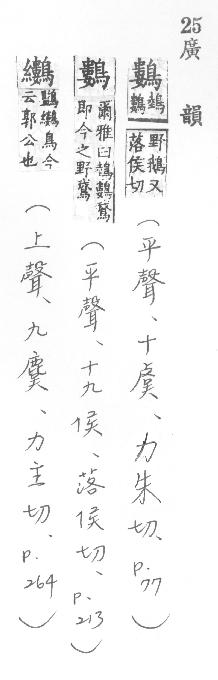 25廣韻
鷜
鵱鷜
野鵝又
落侯切
(平聲、十虞、力朱切、p.77)
鷜
爾雅曰鵱鷜鵞
即今之野鵞
(平聲、十九侯、落侯切、p.213)
鳥今
云郭公也
(上聲、九麌、力主切、p.264)